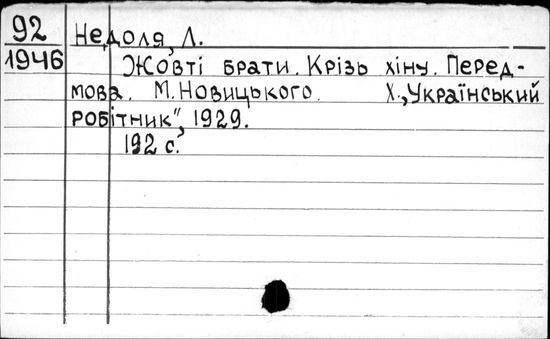 92
1946
Недоля, Л.
Жовті брати. Крізь хіну. Перед-
мова. М. Новицького. Х., „Український
робітник", 1929.
192 с.